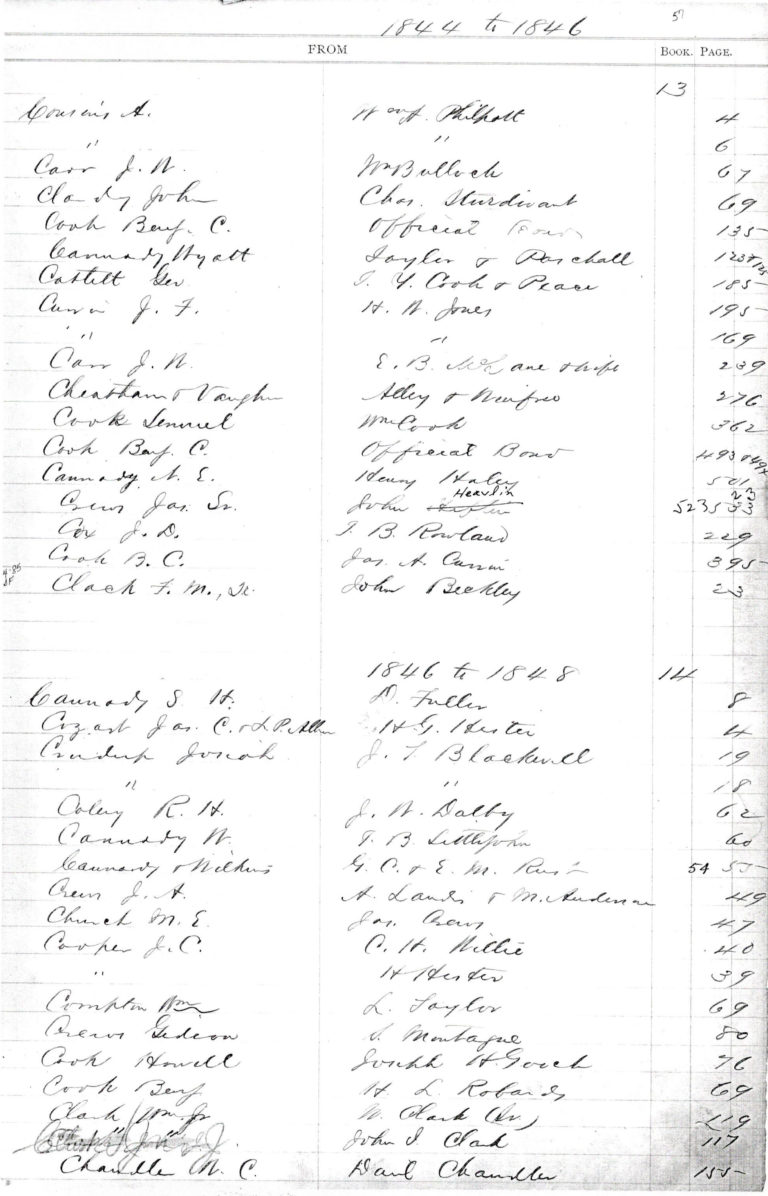 57
1844 to 1846
FROM BOOK. PAGE.
13
Cousins A. Wm A. Philpott 4
" " 6
Carr J. W. Wm Bullock 67
Clandy John Chas. Sturdivant 69
Cook Benj. C. Official Bond 135
Cannady Wyatt Taylor & Paschall 123 & 125
Catlett Geo T. Y. Cook & Peace 185
Currin J. F. H. W. Jones 195
" " 169
Carr J. W. E. B. McLane & wife 239
Cheatham & Vaughn Alley & Winfree 276
Cook Lemuel Wm Cook 362
Cook Benj. C. Official Bond 493 & 494
Cannady N. E. Henry Haley 501
Heavlin 23
Crews Jas. Sr. John 523 533
Cox J. D. T. B. Rowland 229
Cook B. C. Jas. A. Currin 395
Clack F. M., Sr. John Beckley 23
1846 to 1848 14
Cannady S. H. D. Fuller 8
Cozart Jas. C. & L. P. Allen H. G. Hester 4
Crudup Josiah J. T. Blackwell 19
" " 18
Coley R. H. J. W. Dalby 62
Cannady W. T. B. Littlejohn 60
Cannady & Wilkins G. C. & E. M. 54 55
Crews J. A. A. Landis & M. Anderson 49
Church M. E. Jas. Crews 47
Cooper J. C. C. H. Willie 40
" H Hester 39
Compton Wm L. Taylor 69
Crews Gideon S. Montague 80
Cook Howell Joseph H. Gooch 76
Cook Benj H. L. Robards 69
Clark Wm Jr W. Clark (Sr.) 119
John J. Clark 117
Chandler W. C. Danl Chandler 155